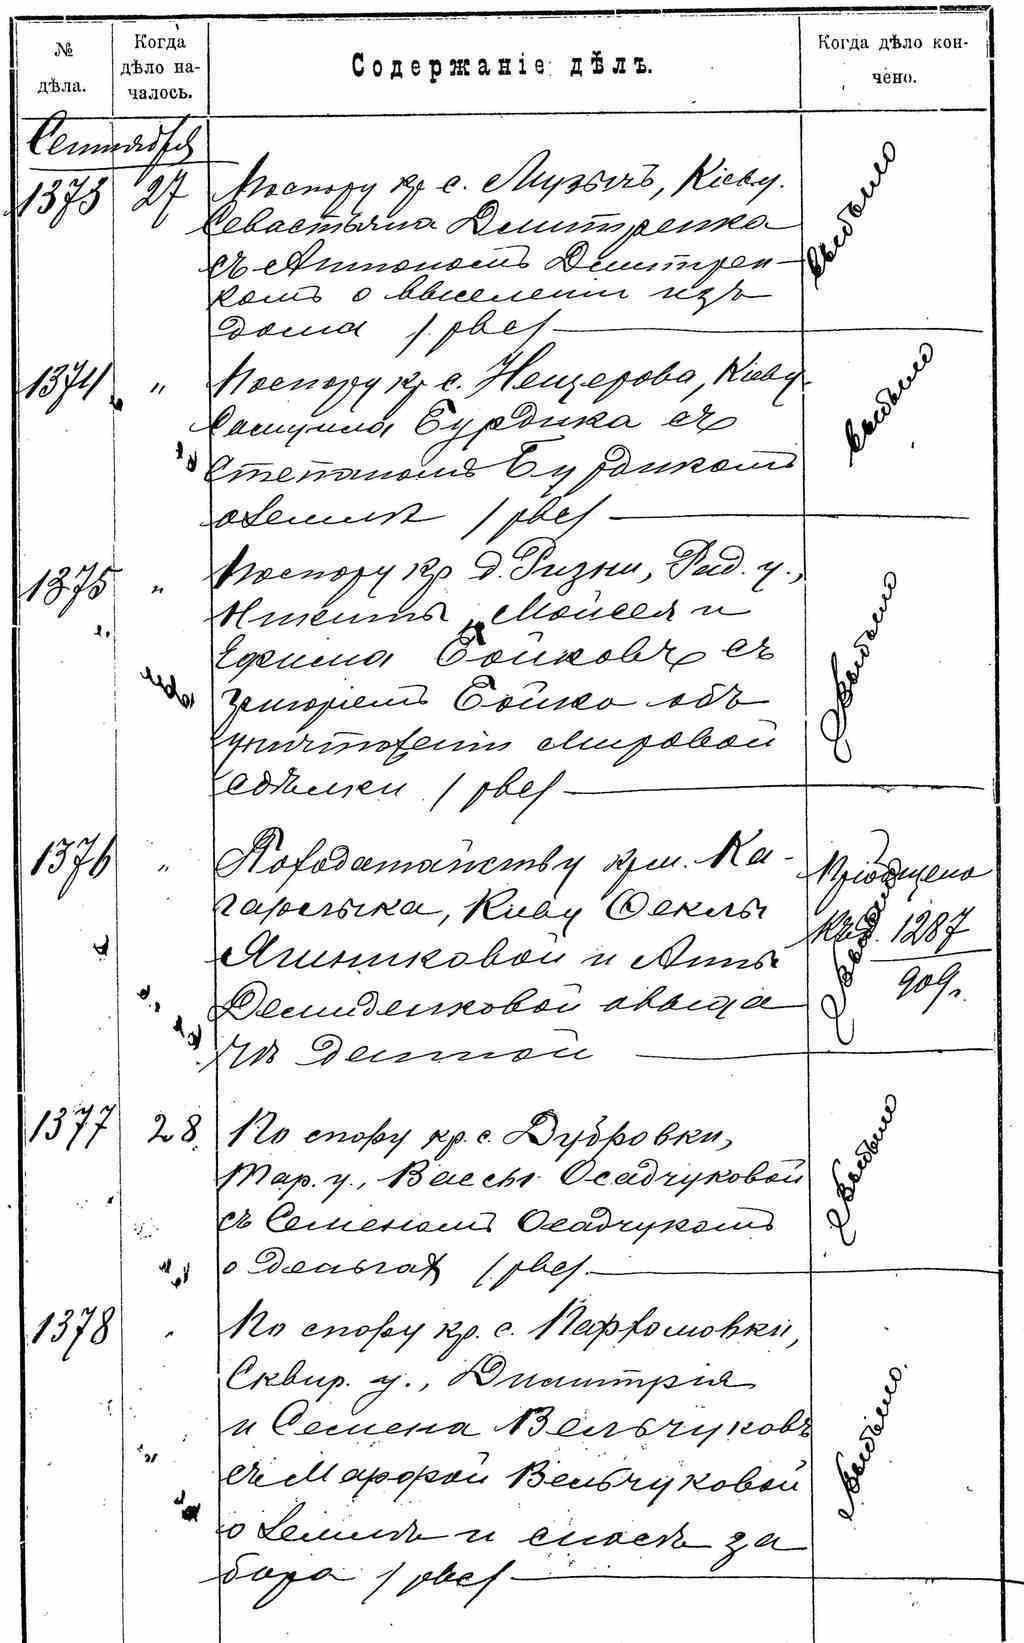 № дѣла.
Когда дѣло началось.
Содержаніе дѣлъ.
Когда дѣло кончено.
Сентября
1373 27 По спору кр. с. Музычъ, Кіев. у.
Севастьяна Дмитренка
съ Антономъ Дмитрен-
комъ о выселеніи изъ
дома
выбыло
1374 " По спору кр. с. Нещерова, Кіев. у.
Самуила Бурдика съ
Степаномъ Бурдикомъ
о землѣ
выбыло
1375 " По спору кр. д. Ризни, Рад. у.,
Никиты, Мойсея и
Ефима Бойковъ съ
Григоріемъ Бойко объ
уничтоженіи мировой
сдѣлки
выбыло
1376 " По ходатайству кр. м. Ка-
гарлыка, Кіев. у. Феклы
Ячниковой и Анны
Демиденковой о выда
чѣ данной
Пріобщено
къ д. 1287
909 г.
выбыло
1377 28 По спору кр. с. Дубровки,
Тар. у., Вассы Осадчуковой
съ Семеномъ Осадчукомъ
о деньгах
выбыло
1378 " По спору кр. с. Пархомовки,
Сквир. у., Димитрія
и Семена Вельчуковъ
съ Марфой Вельчуковой
о землѣ и сносѣ за
бора
выбыло.